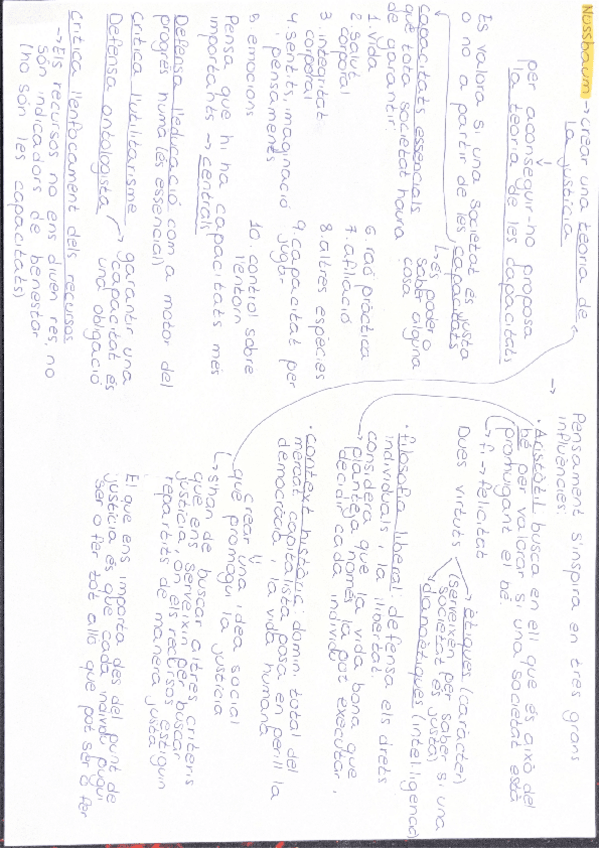 Nussbaum → crear una teoria de
la justícia
per aconseguir-ho proposa
la teoria de les capacitats
Es valora si una societat és justa
o no a partir de les capacitats
↳ és poder o
saber alguna
cosa
capacitats essencials
que tota societat hauria
de garantir:
1. vida
2. salut
corporal
3. integritat
corporal
4. sentits, imaginació
i pensaments
5. emocions
6. raó pràctica
7. afiliació
8. altres espècies
9. capacitat per
jugar
10. control sobre
l'entorn
Pensa que hi ha capacitats més
importants → centrals
Defensa l'educació com a motor del
progrés humà (és essencial)
Critica l'utilitarisme
Defensa ontologista → garantir una
capacitat és
una obligació
Critica l'enfocament dels recursos
→ Els recursos no ens diuen res, no
són indicadors de benestar
(no són les capacitats)
→ Pensament s'inspira en tres grans
influències:
· Aristòtil: busca en ell què és això del
bé per valorar si una societat està
promulgant el bé.
↳ fi → felicitat
Dues virtuts
ètiques (caràcter)
(serveixen per saber si una
societat és justa)
dianoètiques (intel.ligència)
· Filosofia liberal: defensa els drets
individuals i la llibertat.
considera que la vida bona que
→ planteja només la pot executar i
decidir cada individu
· Context històric: domini total del
mercat capitalista posa en perill la
democràcia i la vida humana
crear una idea social
que promogui la justícia
↳ s'han de buscar altres criteris
que ens serveixin per buscar
justícia, on els recursos estiguin
repartits de manera justa
El que ens importa des del punt de
justícia és que cada individu pugui
ser o fer tot allò que pot ser o fer